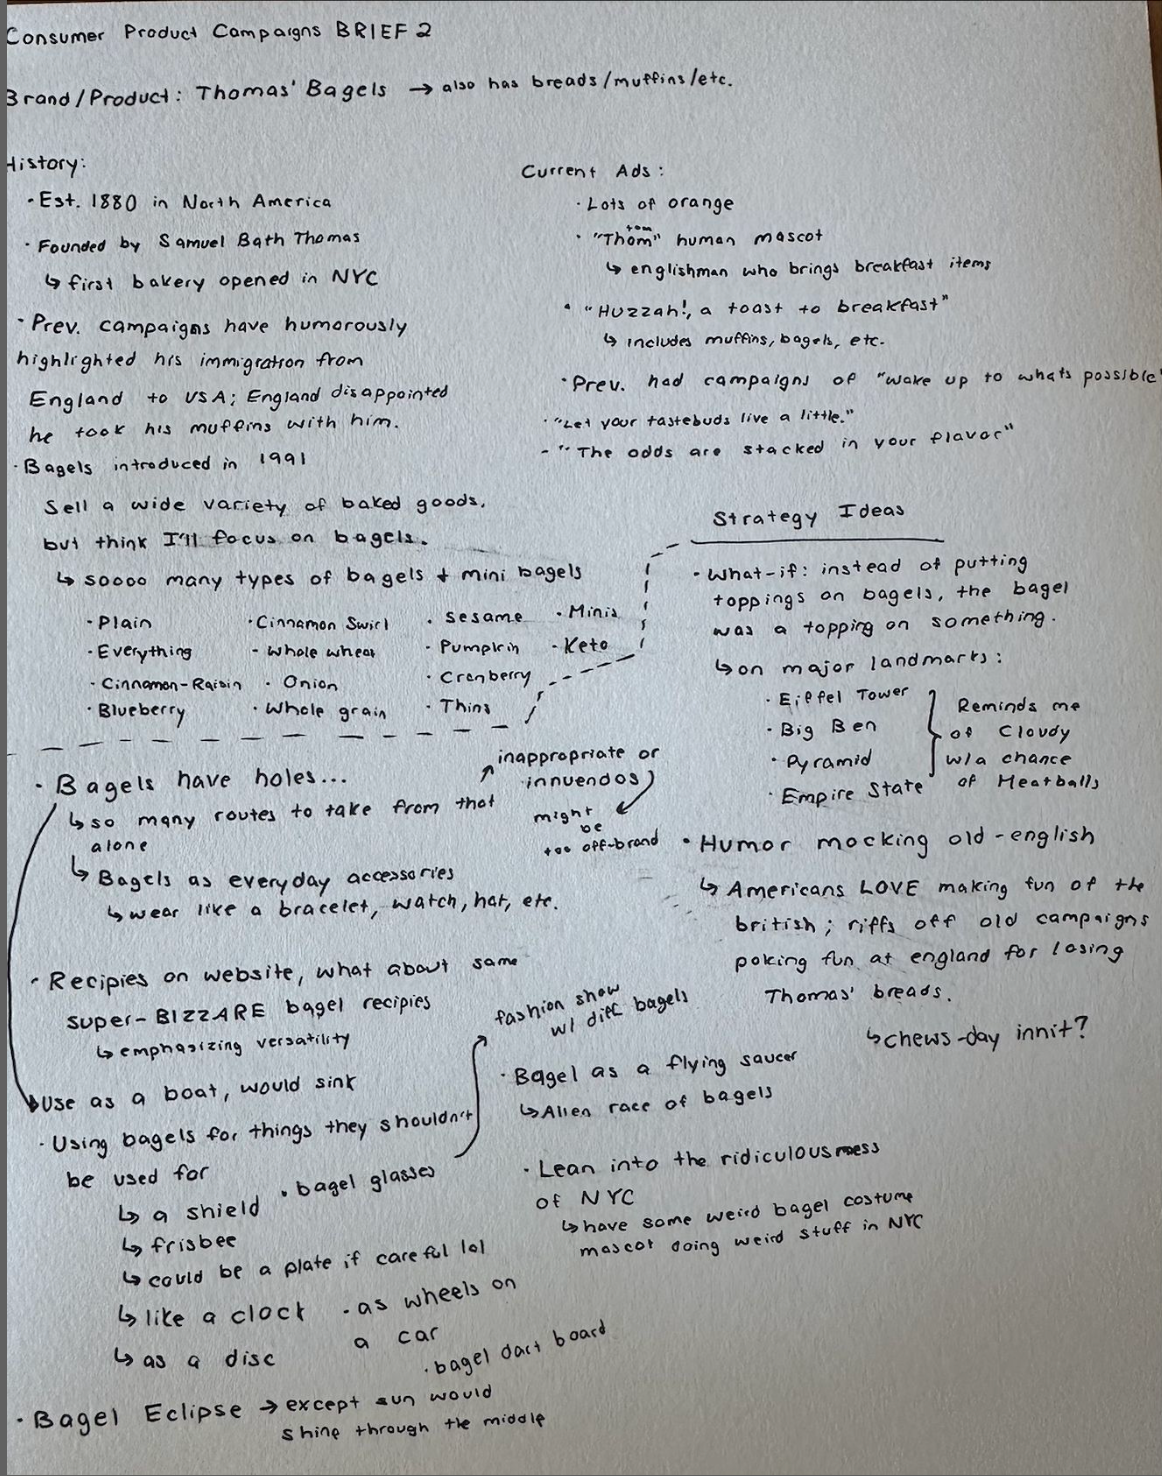 Consumer Product Campaigns BRIEF 2
Brand/Product: Thomas' Bagels → also has breads/muffins/etc.
History:
· Est. 1880 in North America
· Founded by Samuel Bath Thomas
↳ first bakery opened in NYC
· Prev. campaigns have humorously
highlighted his immigration from
England to USA; England disappointed
he took his muffins with him.
· Bagels introduced in 1991
Sell a wide variety of baked goods,
but think I'll focus on bagels.
↳ soooo many types of bagels + mini bagels
· Plain
· Everything
· Cinnamon-Raisin
· Blueberry
· Cinnamon Swirl
- Whole wheat
· Onion
· Whole grain
· Sesame
· Pumpkin
· Cranberry
· Thins
· Minis
· Keto
Current Ads:
· Lots of orange
tom
· "Thom" human mascot
↳ englishman who brings breakfast items
· "Huzzah!, a toast to breakfast"
↳ includes muffins, bagels, etc.
· Prev. had campaigns of "wake up to whats possible"
· "Let your tastebuds live a little."
- "The odds are stacked in your flavor"
Strategy Ideas
· What-if: instead of putting
toppings on bagels, the bagel
was a topping on something.
↳ on major landmarks:
· Eiffel Tower
· Big Ben
· Pyramid
· Empire State
Reminds me
of Cloudy
w/a chance
of Meatballs
· Humor mocking old-english
↳ Americans LOVE making fun of the
british; riffs off old campaigns
poking fun at england for losing
Thomas' breads.
↳ chews-day innit?
· Bagels have holes...
↳ so many routes to take from that
alone
inappropriate or
innuendos
might
be
too off-brand
↳ Bagels as everyday accessories
↳ wear like a bracelet, watch, hat, etc.
· Recipies on website, what about some
super-BIZZARE bagel recipies
↳ emphasizing versatility
Use as a boat, would sink
· Using bagels for things they shouldn't
be used for
↳ a shield
· bagel glasses
↳ frisbee
↳ could be a plate if careful lol
↳ like a clock
· as wheels on
a car
↳ as a disc
· bagel dart board
· Bagel Eclipse → except sun would
shine through the middle
fashion show
w/ diff bagels
· Bagel as a flying saucer
↳ Alien race of bagels
· Lean into the ridiculousness
of NYC
↳ have some weird bagel costume
mascot doing weird stuff in NYC